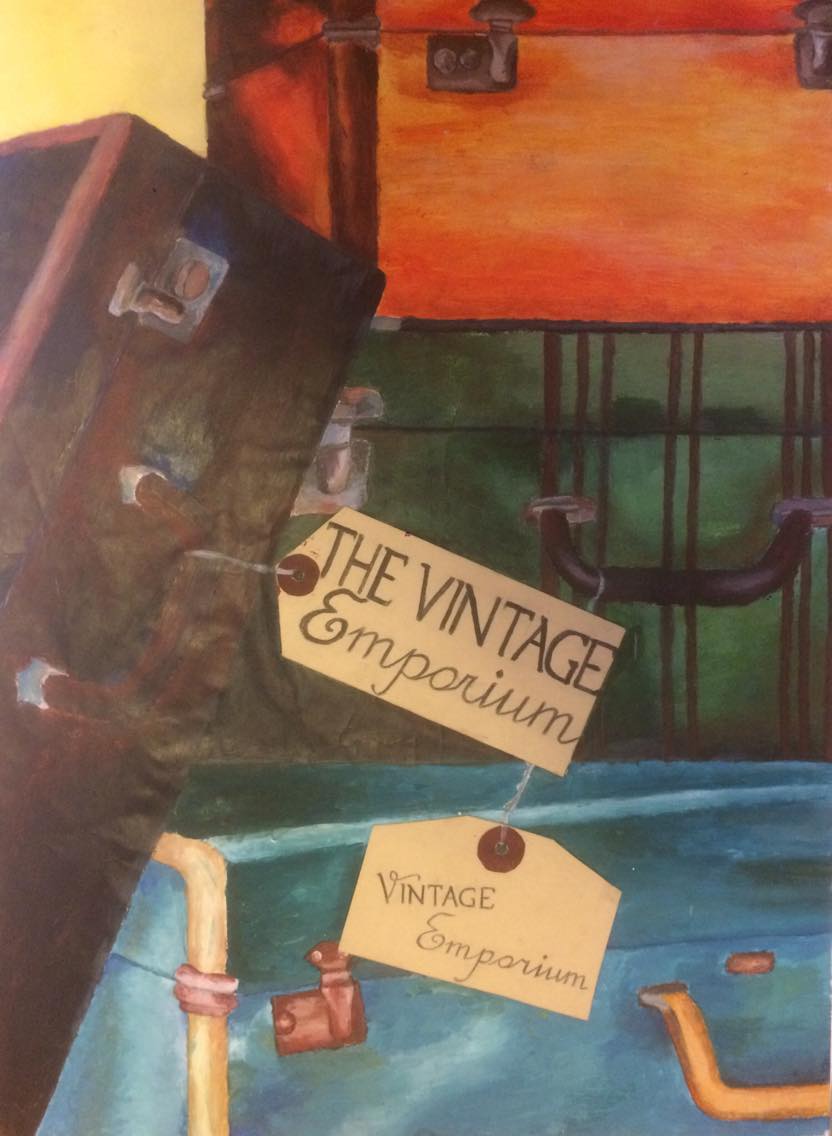 THE VINTAGE
Emporium
VINTAGE
Emporium